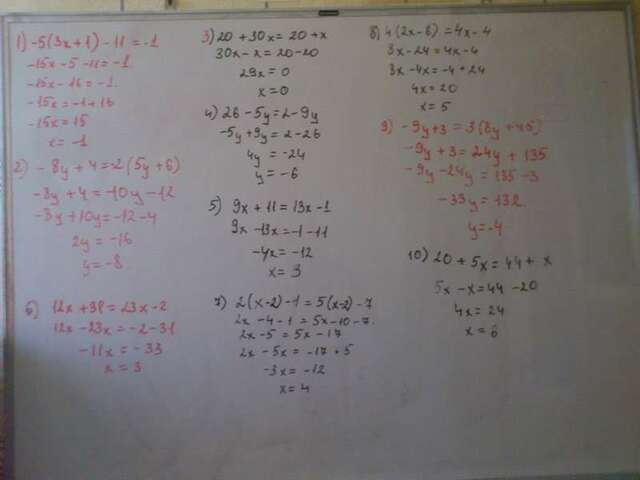 1) -5(3x+1)-11=-1
-15x-5-11=-1
-15x-16=-1
-15x=-1+16
-15x=15
x=-1
2) -8y+4=-2(5y+6)
-8y+4=-10y-12
-8y+10y=-12-4
2y=-16
y=-8
6) 12x+38=23x-2
12x-23x=-2-31
-11x=-33
x=3
3) 20+30x=20+x
30x-x=20-20
29x=0
x=0
4) 26-5y=2-9y
-5y+9y=2-26
4y=-24
y=-6
5) 9x+11=13x-1
9x-13x=-1-11
-4x=-12
x=3
7) 2(x-2)-1=5(x-2)-7
2x-4-1=5x-10-7
2x-5=5x-17
2x-5x=-17+5
-3x=-12
x=4
8) 4(2x-6)=4x-4
8x-24=4x-4
8x-4x=-4+24
4x=20
x=5
9) -9y+3=3(8y+45)
-9y+3=24y+135
-9y-24y=135-3
-33y=132
y=-4
10) 20+5x=44+x
5x-x=44-20
4x=24
x=6